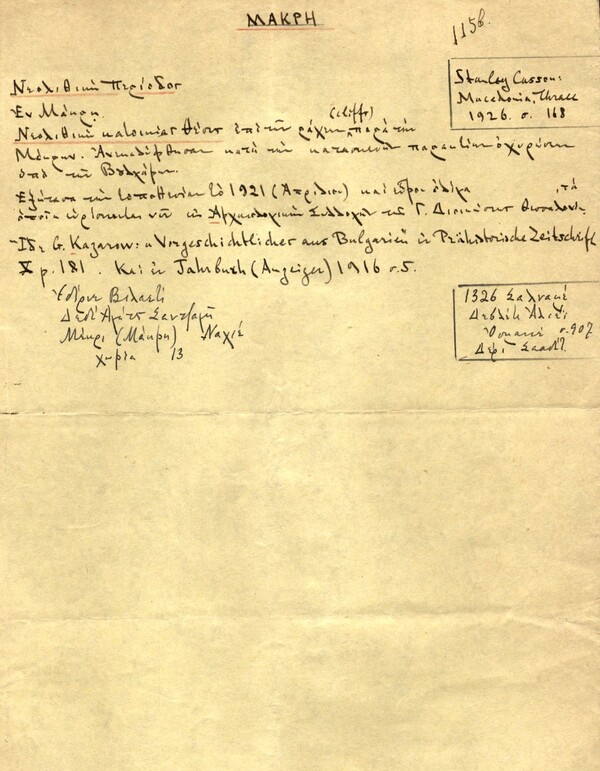 ΜΑΚΡΗ
115β.
Stanley Casson:
Macedonia, Thrace
1926. σ. 168
Νεολιθική Περίοδος
Εν Μάκρη.
(cliffs)
Νεολιθική κατοικίας θέσις επί την ράχιν παρά την
Μάκρην. Ανεκαλύφθησαν κατά την κατασκευήν παρακτίων οχυρώσεων
υπό των Βουλγάρων.
Εξήτασα την τοποθεσίαν το 1921 (Απρίλιον) και εύρον ολίγα, τα
οποία ευρίσκονται νυν εις Αρχαιολογικήν Συλλογήν της Γ. Διοικήσεως Θεσσαλον.
Ιδε G. Kazarow: "Vorgeschichtliches aus Bulgarien" εν Prähistorische Zeitschrift
X p. 181. Και εν Jahrbuch (Anzeiger) 1916 σ. 5.
Βιλαέτι
Δεδέ Αγάτς Σαντζαγή
Μέκρι (Μάκρη) Ναχιέ
χωρία 13
1326 Σαλναμέ
Δεβλέτ Αλιέϊ
σ. 907
Δερί Σααδέτ